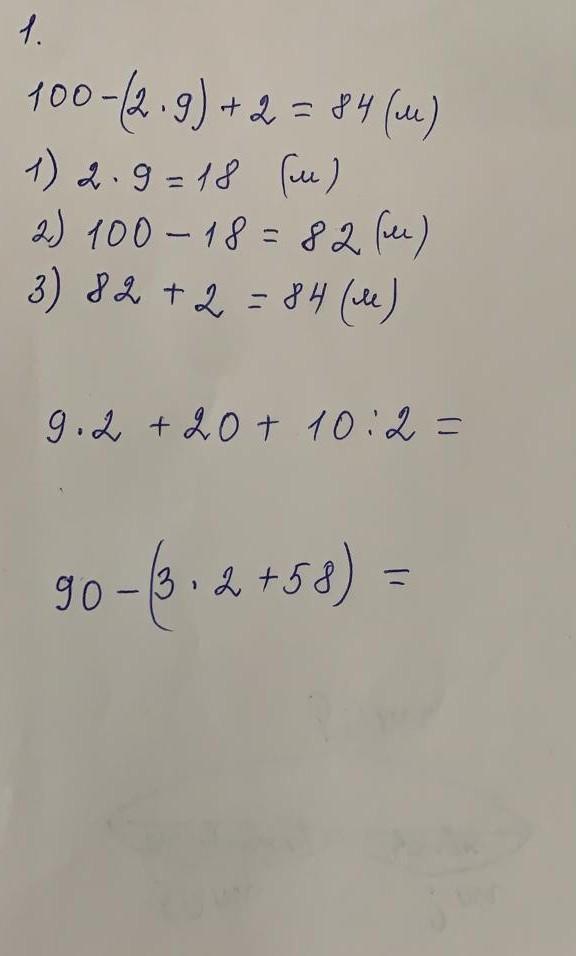 1.
100-(2·9)+2=84(м)
1) 2·9=18 (м)
2) 100-18=82(м)
3) 82+2=84(м)
9·2+20+10:2=
90-(3·2+58)=